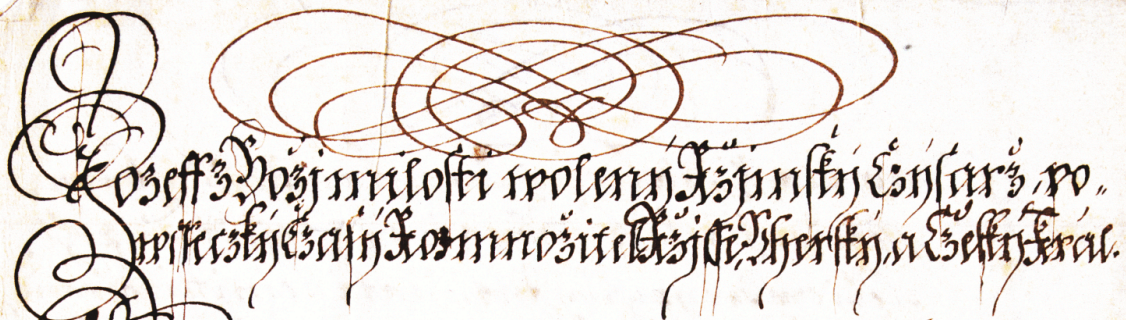 Jozeff z Boží milosti wolený Ržjmský Czýsarž, po-
wšseczkých Czasých Rozmnožitel Ržjsse, Vherský, a Cžeský Král.